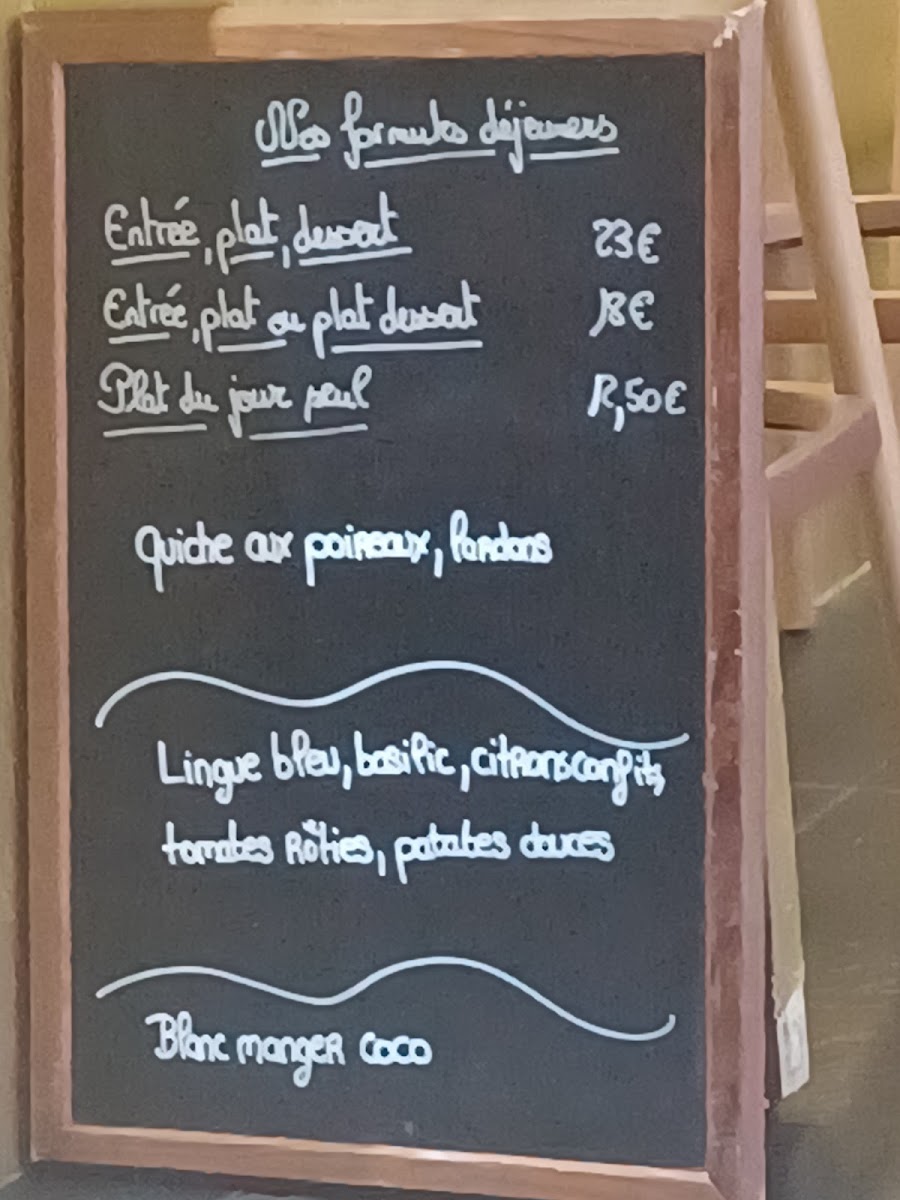 Nos formules déjeuners
Entrée, plat, dessert 23€
Entrée, plat ou plat dessert 18€
Plat du jour peul 12,50€
Quiche aux poireaux, lardons
Lingue bleu, basilic, citrons confits,
tomates rôties, patates douces
Blanc manger coco